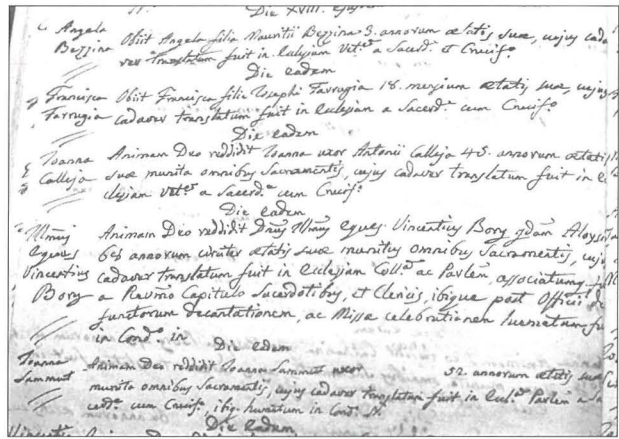 Die XVIII. ejusdem
Angela Obiit Angela filia Mauritii Bezzina 3. annorum ætatis suæ, cujus cada
Bezzina ver translatum fuit in Ecclesiam Vet.ª a Sacerd.e et Crucif.º
Die eadem
Francisca Obiit Francisca filia Josephi Farrugia 18. mensium ætatis suæ, cujus
Farrugia cadaver translatum fuit in Ecclesiam a Sacerd.e cum Crucif.º
Die eadem
Joanna Animam Deo reddidit Joanna uxor Antonii Calleja 45. annorum ætatis
Calleja suæ munita omnibus Sacramentis, cujus cadaver translatum fuit in E
clesiam Vet.ª a Sacerd.e cum Crucif.º
Die eadem
Illmus Animam Deo reddidit Dnus Illmus eques Vincentius Borg qdam Aloysii
eques annorum circiter ætatis suæ munitus omnibus Sacramentis, cuju
Vincentius cadaver translatum fuit in Ecclesiam ac associatum
Borg a Capitulo Sacerdotibus, et Clericis, ibique post Officii
functorum decantationem, ac Missæ celebrationem
in Cond.ª in
Die eadem
Joanna Animam Deo reddidit Joanna Sammut uxor 52. annorum ætatis suæ
Sammut munita omnibus Sacramentis, cujus cadaver translatum fuit in a Sa
cerd.e cum Crucif.º, ibiq. in Cond.ª N.
Die eadem
Animam Deo